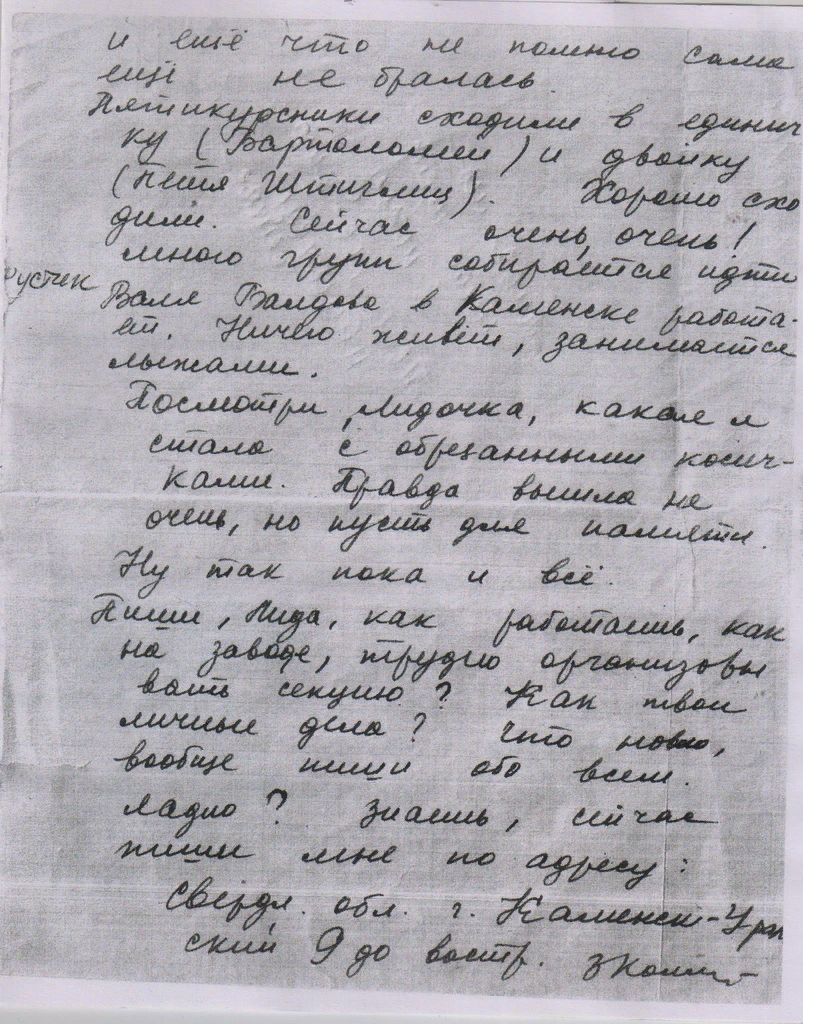 и ещё что не помню сама
ещё не бралась.
Пятикурсники сходили в единич
ку (Бартоломей) и двойку
(Петя Штиглиц). Хорошо схо
дили. Сейчас очень, очень!
много групп собирается идти
Валя Балдова в Каменске работа-
ет. Ничего живёт, занимается
лыжами.
Посмотри, Лидочка, какая я
стала с обрезанными косич-
ками. Правда вышла не
очень, но пусть для памяти.
Ну так пока и всё.
Пиши, Лида, как работаешь, как
на заводе, трудно организовы
вать секцию? Как твои
личные дела? Что нового,
вообще пиши обо всем.
Ладно? Знаешь, сейчас
пиши мне по адресу:
Свердл. обл. г. Каменск-Урал
ский до востр. ЗКолм